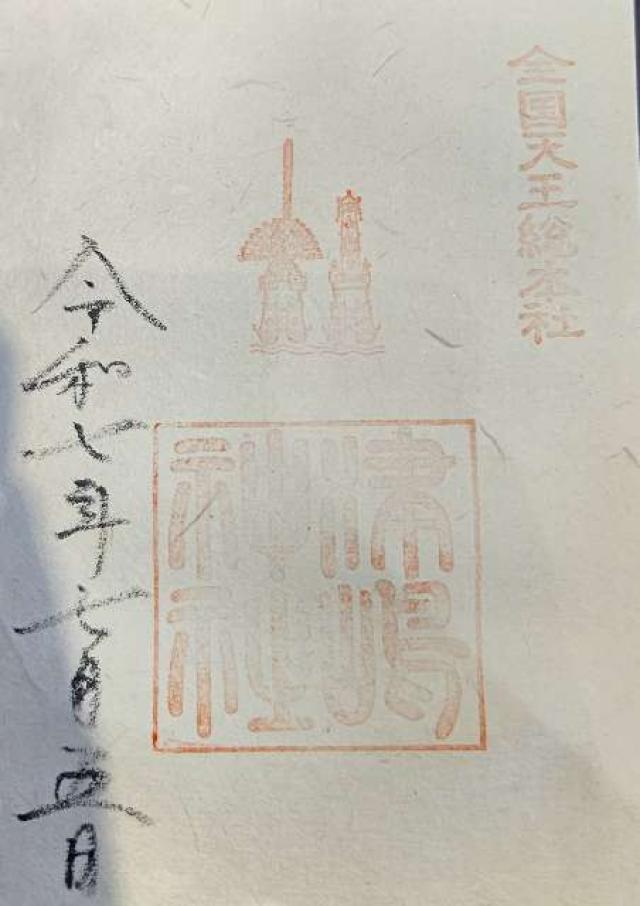 全国天王総本社
津嶋神社
令和七年七月五日